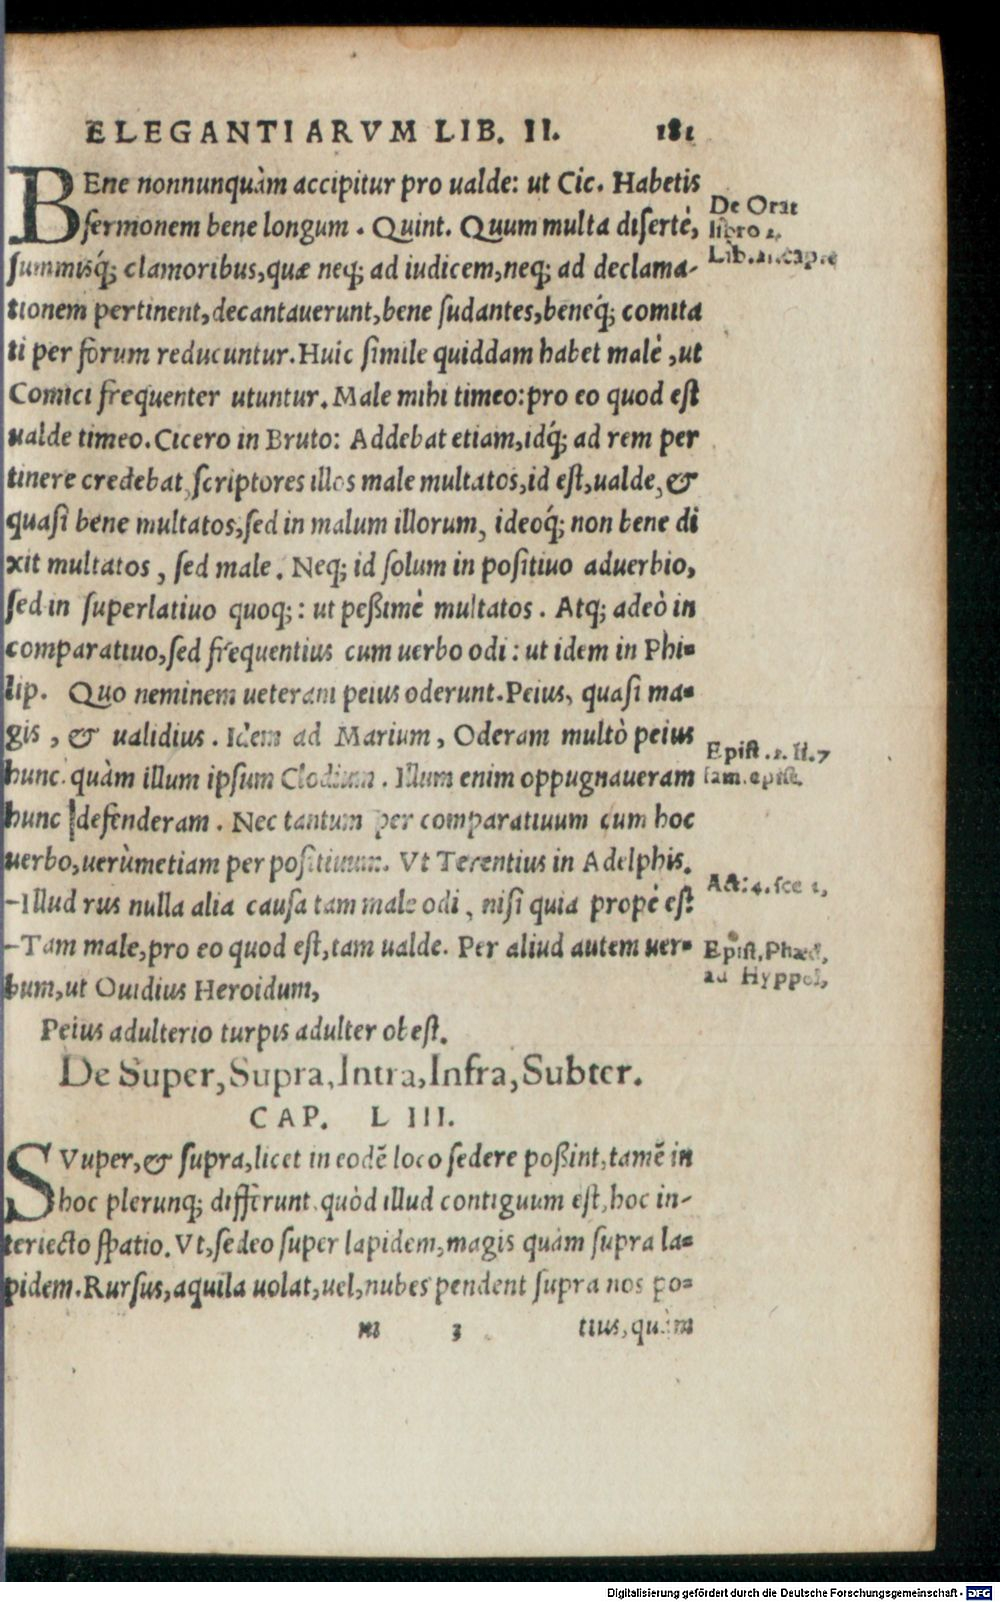 ELEGANTIARVM LIB. II. 181
BEne nonnunquàm accipitur pro ualde: ut Cic. Habetis
sermonem bene longum. Quint. Quum multa disertè,
summisq́; clamoribus, quæ neq; ad iudicem, neq; ad declama-
tionem pertinent, decantauerunt, bene sudantes, beneq́; comita
ti per forum reducuntur. Huic simile quiddam habet malè, ut
Comici frequenter utuntur. Male mihi timeo: pro eo quod est
ualde timeo. Cicero in Bruto: Addebat etiam, idq́; ad rem per
tinere credebat, scriptores illos male multatos, id est, ualde, &
quasi bene multatos, sed in malum illorum, ideoq́; non bene di
xit multatos, sed male. Neq; id solum in positiuo aduerbio,
sed in superlatiuo quoq;: ut peßimè multatos. Atq; adeò in
comparatiuo, sed frequentius cum uerbo odi: ut idem in Phi-
lip. Quo neminem ueterani peius oderunt. Peius, quasi ma-
gis, & ualidius. Idem ad Marium, Oderam multò peius
hunc quàm illum ipsum Clodium. Illum enim oppugnaueram
hunc defenderam. Nec tantum per comparatiuum cum hoc
uerbo, uerùmetiam per positiuum. Vt Terentius in Adelphis.
-Illud rus nulla alia causa tam male odi, nisi quia propè est
-Tam male, pro eo quod est, tam ualde. Per aliud autem uer-
bum, ut Ouidius Heroidum,
Peius adulterio turpis adulter obest.
De Super, Supra, Intra, Infra, Subter.
CAP. LIII.
SVuper, & supra, licet in eodē loco sedere poßint, tamē in
hoc plerunq; differunt, quòd illud contiguum est, hoc in-
teriecto spatio. Vt, sedeo super lapidem, magis quàm supra la-
pidem. Rursus, aquila uolat, uel, nubes pendent supra nos po-
m 3 tius, quàm
De Orat
libro 1.
Epist. 2. li. 7
fam. epist.
Act. 4. sce 1,
Epist. Phæd,
ad Hyppol,
Digitalisierung gefördert durch die Deutsche Forschungsgemeinschaft - DFG